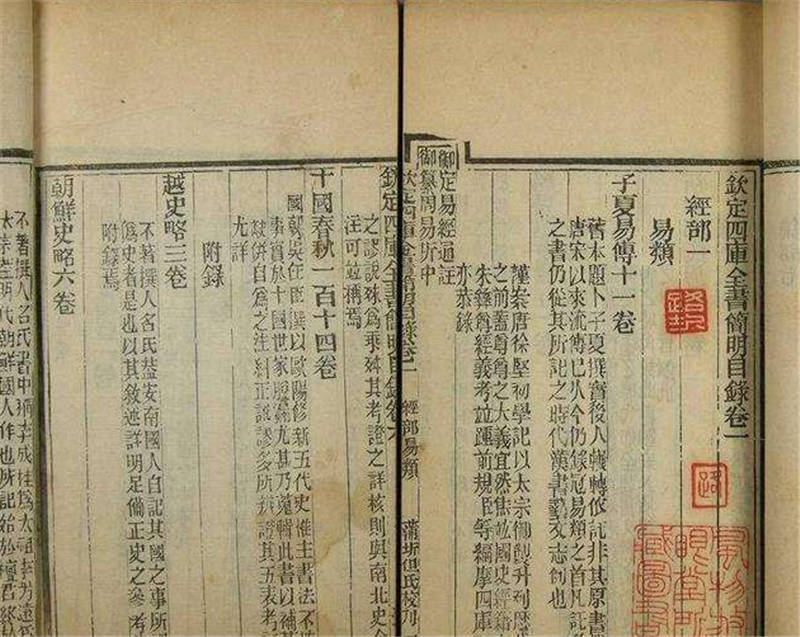 欽定四庫全書簡明目錄卷一
經部一
易類
子夏易傳十一卷
舊本題卜子夏撰實後人輾轉依託非其原書
唐宋以來流傳已久今仍錄冠易類之首凡託
之書仍從其所託之時代漢書藝文志例也
謹案唐徐堅初學記以太宗御製升列歷
之前蓋尊尊之大義宜然焦竑國史經籍
朱彝尊經義考並踵前規臣等編摩四庫
亦恭錄
御定易經通註
御纂周易折中
欽定四庫全書簡明目錄卷一 經部易類 蒲圻但氏校刊
欽定四庫全書簡明目錄卷六
之謬說殊為乖舛其考證之詳核則與南北史
注可並稱焉
十國春秋一百十四卷
國朝吳任臣撰以歐陽修新五代史惟主書法不
事實於十國世家脫畧尤甚乃蒐輯此書以補
缺併自為之注糾正訛謬多所辨證其五表考
尤詳
附錄
越史略三卷
不著撰人名氏蓋安南國人自記其國之事所
偽史者是也以其敘述詳明足備正史之參考
附錄焉
朝鮮史略六卷
不著撰人名氏書中稱李成桂為太祖李芳遠
太宗蓋明代朝鮮國人作也所記始於檀君終